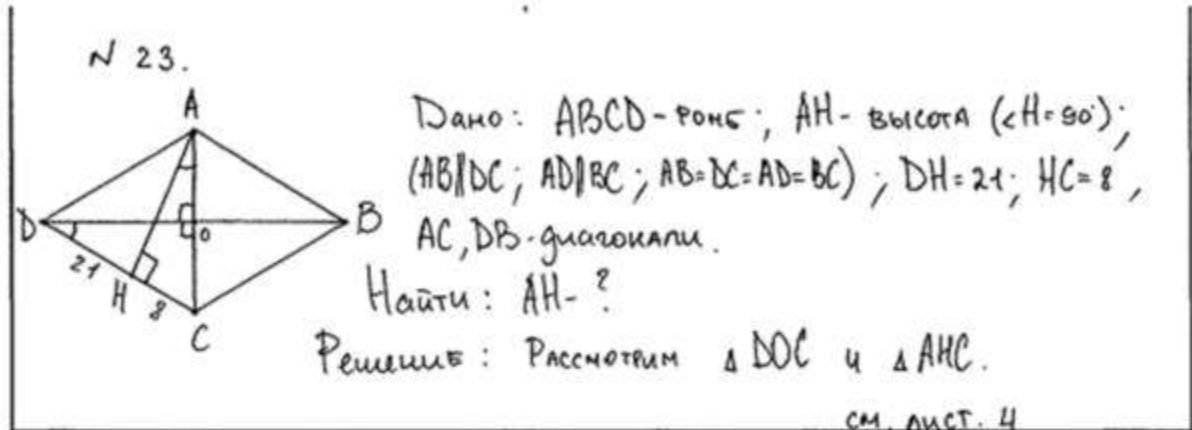 N 23.
A
Дано: ABCD - ромб; AH - высота (<H=90°);
(AB||DC; AD||BC; AB=DC=AD=BC); DH=21; HC=8,
D O B
AC, DB - диагонали.
21 H 8
Найти: AH - ?
C
Решение: Рассмотрим Δ DOC и Δ AHC.
см. лист. 4